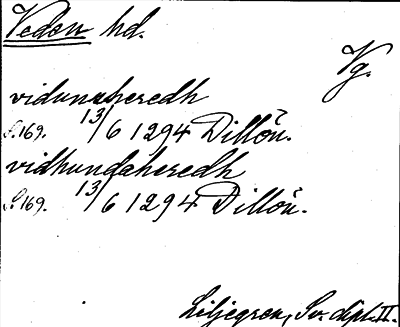 Vedens hd.
Vg.
vidunaheredh
S. 169. 13/6 1294 Dillön.
vidhundaheredh
S. 169. 13/6 1294 Dillön.
Liljegren, Sv. dipl. II.